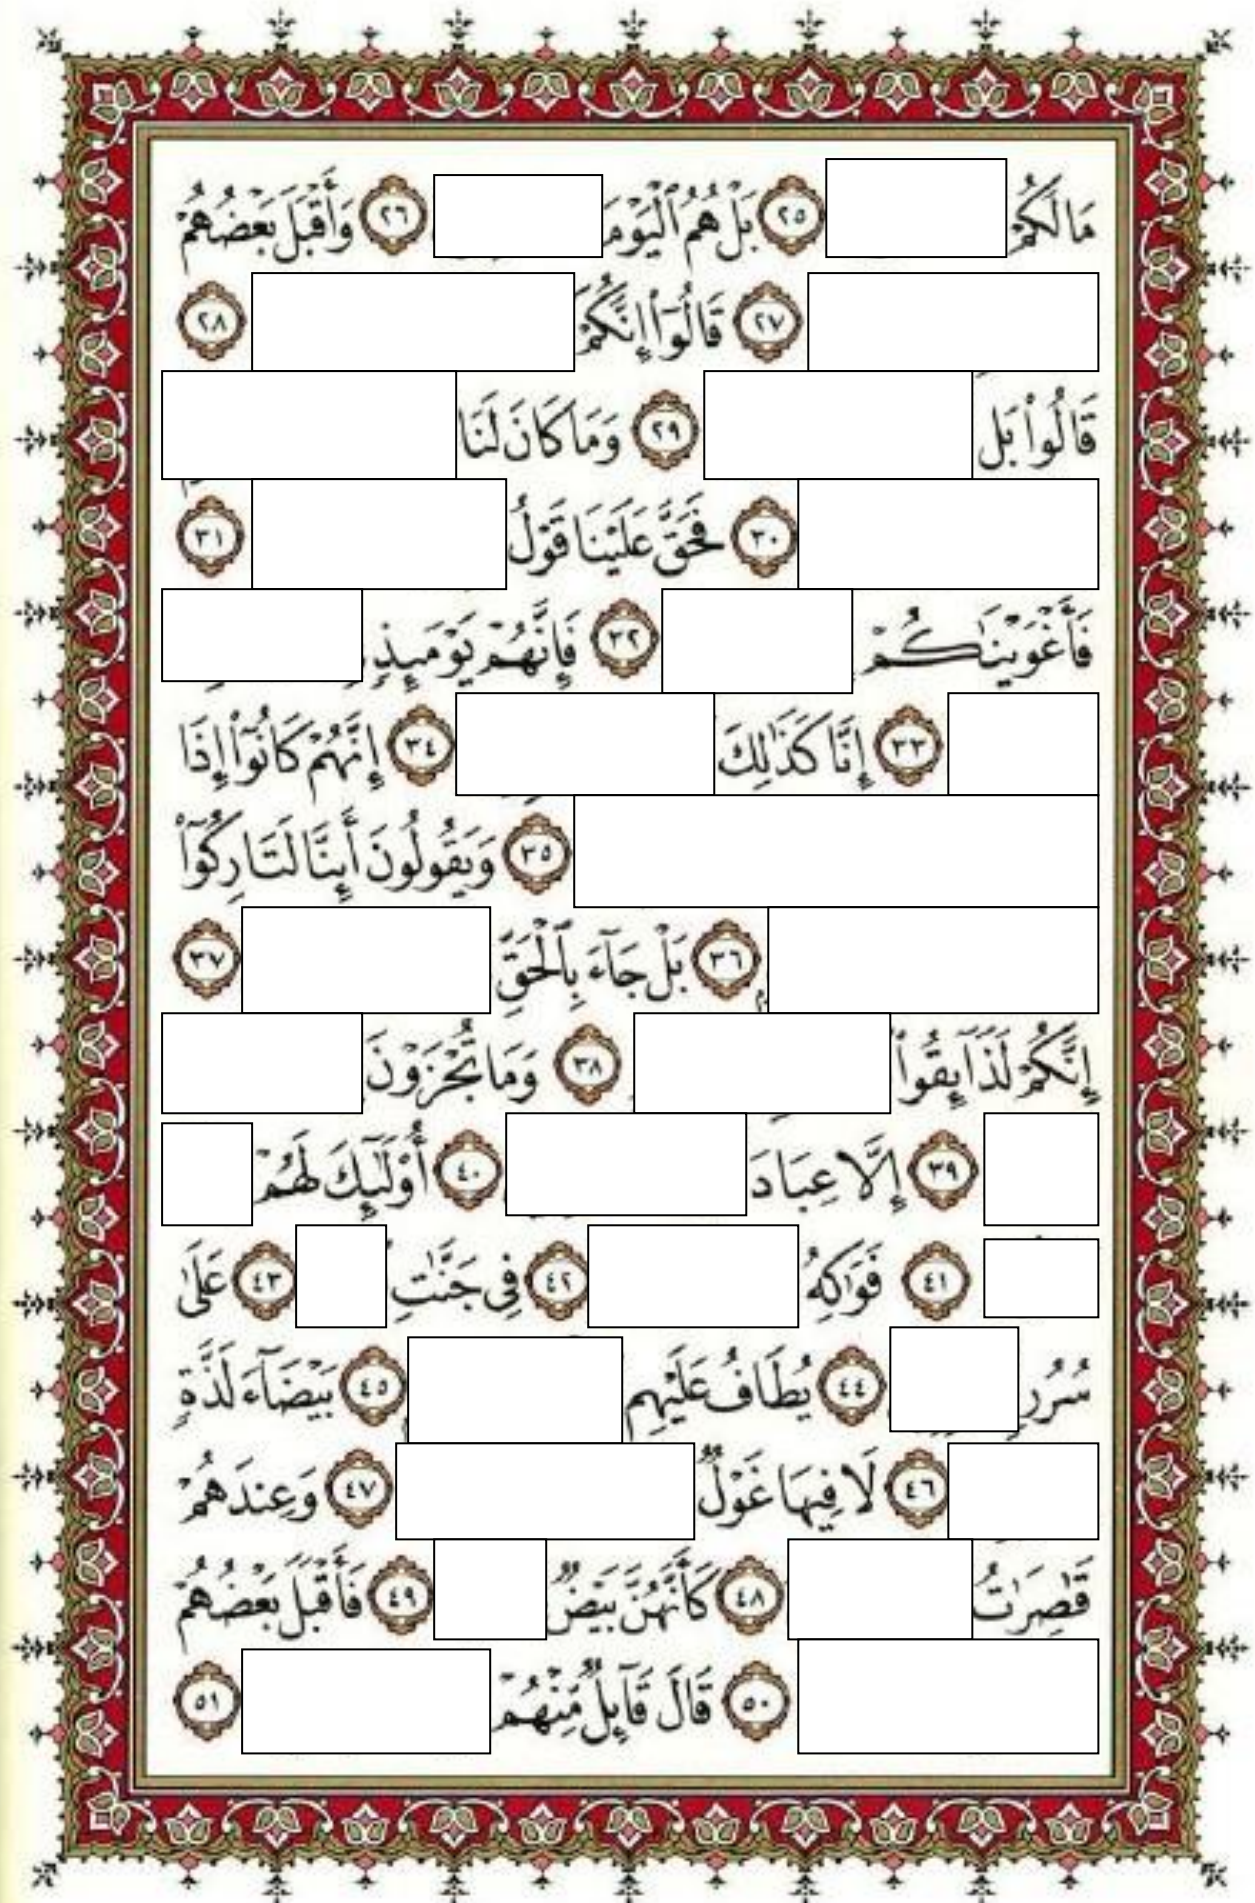 مَا لَكُمْ ٢٥ بَلْ هُمُ ٱلْيَوْمَ ٢٦ وَأَقْبَلَ بَعْضُهُمْ
٢٧ قَالُوٓا۟ إِنَّكُمْ ٢٨
قَالُوا۟ بَل ٢٩ وَمَا كَانَ لَنَا
٣٠ فَحَقَّ عَلَيْنَا قَوْلُ ٣١
فَأَغْوَيْنَٰكُمْ ٣٢ فَإِنَّهُمْ يَوْمَئِذٍ
٣٣ إِنَّا كَذَٰلِكَ ٣٤ إِنَّهُمْ كَانُوٓا۟ إِذَا
٣٥ وَيَقُولُونَ أَئِنَّا لَتَارِكُوٓا۟
٣٦ بَلْ جَآءَ بِٱلْحَقِّ ٣٧
إِنَّكُمْ لَذَآئِقُوا۟ ٣٨ وَمَا تُجْزَوْنَ
٣٩ إِلَّا عِبَادَ ٤٠ أُو۟لَٰٓئِكَ لَهُمْ
٤١ فَوَٰكِهُ ٤٢ فِى جَنَّٰتِ ٤٣ عَلَىٰ
سُرُرٍ ٤٤ يُطَافُ عَلَيْهِم ٤٥ بَيْضَآءَ لَذَّةٍ
٤٦ لَا فِيهَا غَوْلٌ ٤٧ وَعِندَهُمْ
قَٰصِرَٰتُ ٤٨ كَأَنَّهُنَّ بَيْضٌ ٤٩ فَأَقْبَلَ بَعْضُهُمْ
٥٠ قَالَ قَآئِلٌ مِّنْهُمْ ٥١